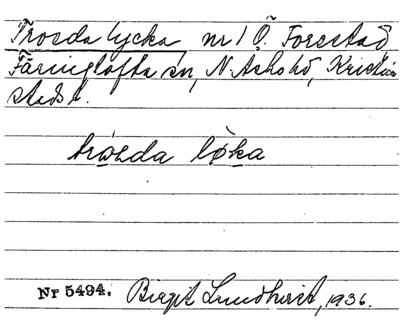 Trosda lycka, nr 1 Ö. Forestad
Färingtofta sn, N. Åsbo hd, Kristian
stads l.
trosda løka
Nr 5494. Birgit Lundkvist, 1936.